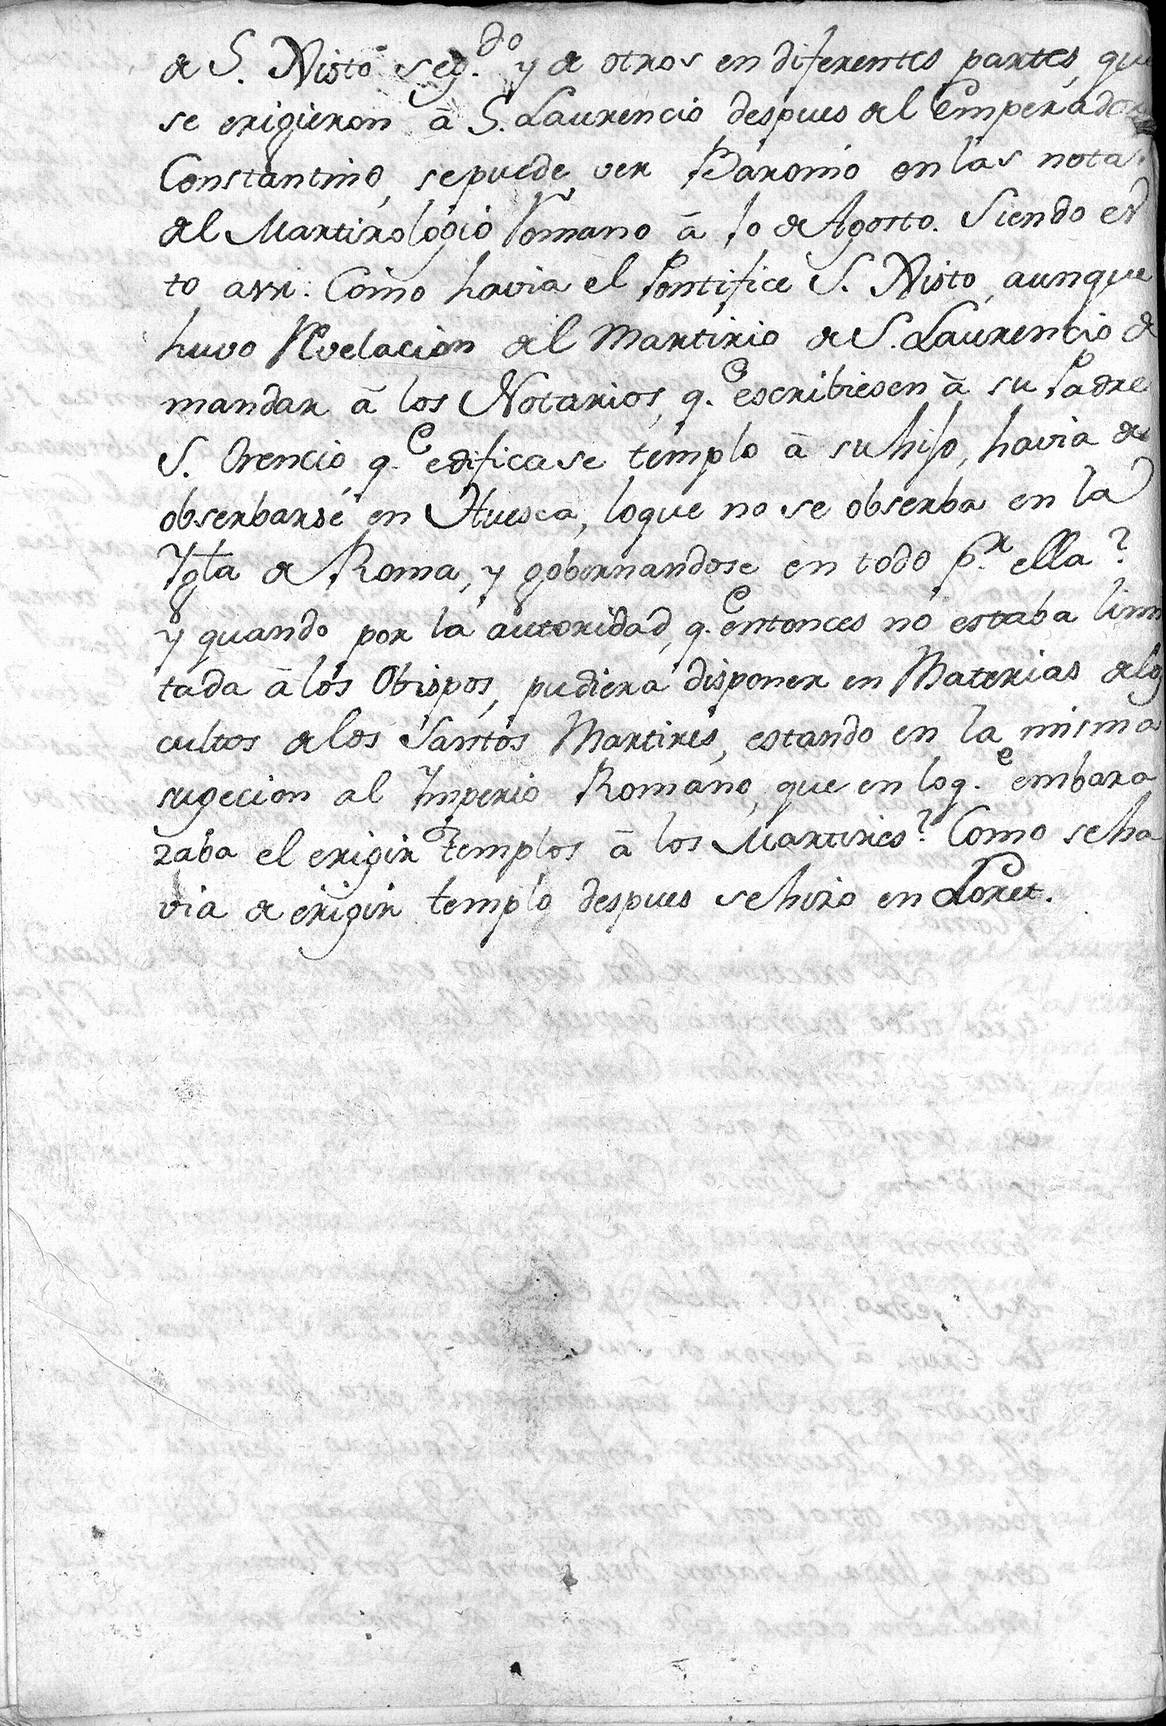 de S. Xisto seg.do y de otros en diferentes partes, que
se erigieron à S. Laurencio despues del Emperador
Constantino, sepuede ver Baronio en las notas
del Martirologio Romano à 10 de Agosto. Siendo es
to assi: Como havia el Pontifice S. Xisto, aunque
huvo Revelacion del Martirio de S. Laurencio de
mandar à los Notarios, q.e escribiesen à su Padre
S. Orencio, q.e edificase templo à su hijo, havia de
obserbarse en Huesca, loque no se obserba en la
Ygla de Roma, y gobernandose en todo p.r ella?
y quando por la autoridad, q.e entonces no estaba limi
tada à los Obispos, pudiera disponer en Materias de los
cultos de los Santos Martires, estando en la misma
sugecion al Ymperio Romano, que en loq.e embara
zaba el erigir templos à los Martires? Como se ha
via de erigir templo despues se hizo en Loret.